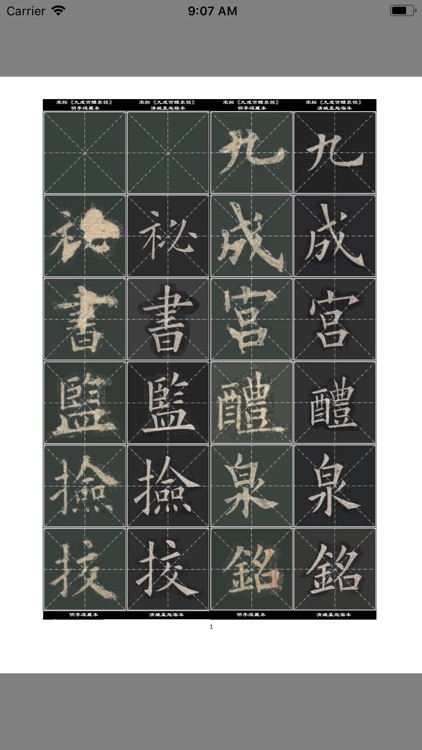 Carrier 9:07 AM
宋拓《九成宫醴泉铭》 宋拓《九成宫醴泉铭》 宋拓《九成宫醴泉铭》 宋拓《九成宫醴泉铭》
明李琪藏本 清姚孟起临本 明李琪藏本 清姚孟起临本
九 九
祕 祕 成 成
書 書 宮 宮
監 監 醴 醴
撿 撿 泉 泉
挍 挍 銘 銘
明李琪藏本 清姚孟起临本 明李琪藏本 清姚孟起临本
1